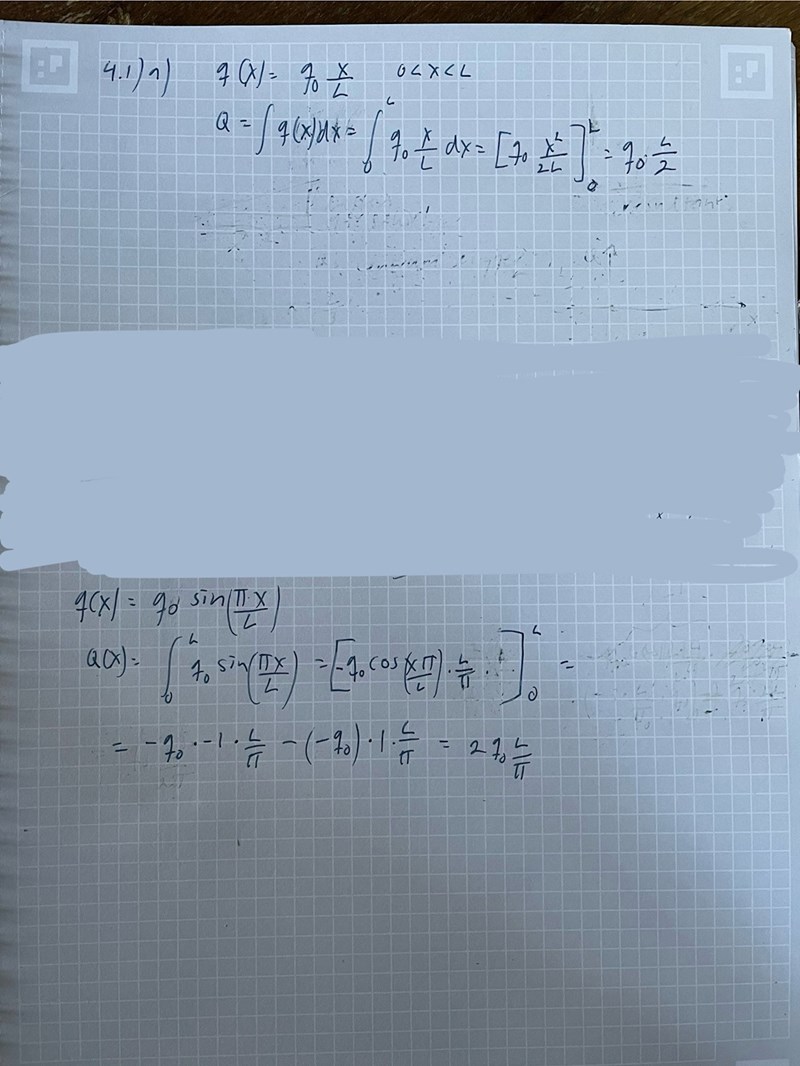 4.1) a) q(x) = q₀ x/L 0 < x < L
Q = ∫ q(x)dx = ∫₀ᴸ q₀ x/L dx = [q₀ x²/2L]₀ᴸ = q₀ · L/2
q(x) = q₀ sin(πx/L)
Q(x) = ∫₀ᴸ q₀ sin(πx/L) = [-q₀ cos(xπ/L) · L/π ·]₀ᴸ =
= -q₀ · -1 · L/π - (-q₀) · 1 · L/π = 2 q₀ L/π